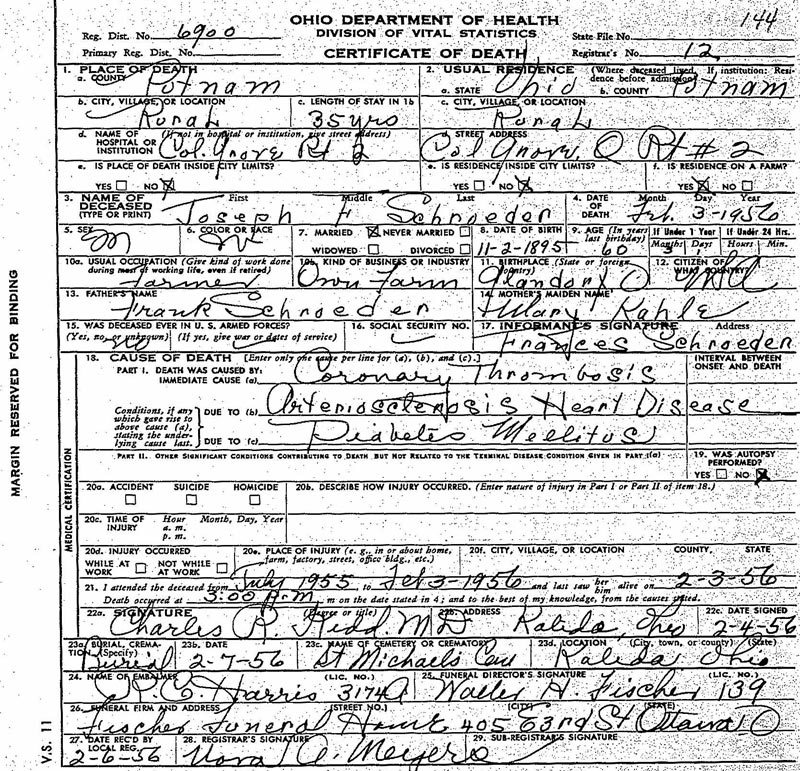 144
OHIO DEPARTMENT OF HEALTH
DIVISION OF VITAL STATISTICS
CERTIFICATE OF DEATH
Reg. Dist. No. 6900 State File No.
Primary Reg. Dist. No. Registrar's No. 12
1. PLACE OF DEATH 2. USUAL RESIDENCE (Where deceased lived. If institution: Resi-
a. COUNTY Putnam a. STATE Ohio dence before admission) b. COUNTY Putnam
b. CITY, VILLAGE, OR LOCATION c. LENGTH OF STAY IN 1b c. CITY, VILLAGE, OR LOCATION
Rural 35 yrs Rural
d. NAME OF (If not in hospital or institution, give street address) d. STREET ADDRESS
HOSPITAL OR INSTITUTION Col. Grove Rt 2 Col Grove O Rt # 2
e. IS PLACE OF DEATH INSIDE CITY LIMITS? e. IS RESIDENCE INSIDE CITY LIMITS? f. IS RESIDENCE ON A FARM?
YES NO X YES NO X YES X NO
3. NAME OF DECEASED (TYPE OR PRINT) First Middle Last 4. DATE OF DEATH Month Day Year
Joseph F Schroeder Feb. 3-1956
5. SEX 6. COLOR OR RACE 7. MARRIED X NEVER MARRIED 8. DATE OF BIRTH 9. AGE (In years last birthday) If Under 1 Year If Under 24 Hrs.
M W WIDOWED DIVORCED 11-2-1895 60 Months Days Hours Min.
3 1
10a. USUAL OCCUPATION (Give kind of work done during most of working life, even if retired) 10b. KIND OF BUSINESS OR INDUSTRY 11. BIRTHPLACE (State or foreign country) 12. CITIZEN OF WHAT COUNTRY?
Farmer Own Farm Glandorf O USA
13. FATHER'S NAME 14. MOTHER'S MAIDEN NAME
Frank Schroeder Mary Kahle
15. WAS DECEASED EVER IN U. S. ARMED FORCES? 16. SOCIAL SECURITY NO. 17. INFORMANT'S SIGNATURE Address
(Yes, no, or unknown) (If yes, give war or dates of service)
no Frances Schroeder
18. CAUSE OF DEATH [Enter only one cause per line for (a), (b), and (c).] INTERVAL BETWEEN ONSET AND DEATH
PART I. DEATH WAS CAUSED BY:
IMMEDIATE CAUSE (a) Coronary Thrombosis
Conditions, if any which gave rise to above cause (a), stating the under-lying cause last. DUE TO (b) Arteriosclerosis Heart Disease
DUE TO (c) Diabetes Mellitus
PART II. OTHER SIGNIFICANT CONDITIONS CONTRIBUTING TO DEATH BUT NOT RELATED TO THE TERMINAL DISEASE CONDITION GIVEN IN PART I(a) 19. WAS AUTOPSY PERFORMED?
YES NO X
20a. ACCIDENT SUICIDE HOMICIDE 20b. DESCRIBE HOW INJURY OCCURRED. (Enter nature of injury in Part I or Part II of item 18.)
20c. TIME OF INJURY Hour Month, Day, Year
a. m.
p. m.
20d. INJURY OCCURRED 20e. PLACE OF INJURY (e. g., in or about home, farm, factory, street, office bldg., etc.) 20f. CITY, VILLAGE, OR LOCATION COUNTY, STATE
WHILE AT WORK NOT WHILE AT WORK
21. I attended the deceased from July 1955 to Feb 3-1956 and last saw her him alive on 2-3-56
Death occurred at 3:00 P.M. m on the date stated in 4; and to the best of my knowledge, from the causes stated.
22a. SIGNATURE (Degree or title) 22b. ADDRESS 22c. DATE SIGNED
Charles R. MD Kalida, Ohio 2-4-56
23a. BURIAL, CREMA-TION (Specify) 23b. DATE 23c. NAME OF CEMETERY OR CREMATORY 23d. LOCATION (City, town, or county) (State)
Burial 2-7-56 St Michaels Cem Kalida Ohio
24. NAME OF EMBALMER (LIC. NO.) 25. FUNERAL DIRECTOR'S SIGNATURE (LIC. NO.)
Harris 3174A Walter H. Fischer 139
26. FUNERAL FIRM AND ADDRESS (STREET NO.) (CITY) (STATE)
Fischer Funeral Home 405 E 3rd St Ottawa O
27. DATE REC'D BY LOCAL REG. 28. REGISTRAR'S SIGNATURE 29. SUB-REGISTRAR'S SIGNATURE
2-6-56 Meyers
MARGIN RESERVED FOR BINDING
MEDICAL CERTIFICATION
V.S. 11